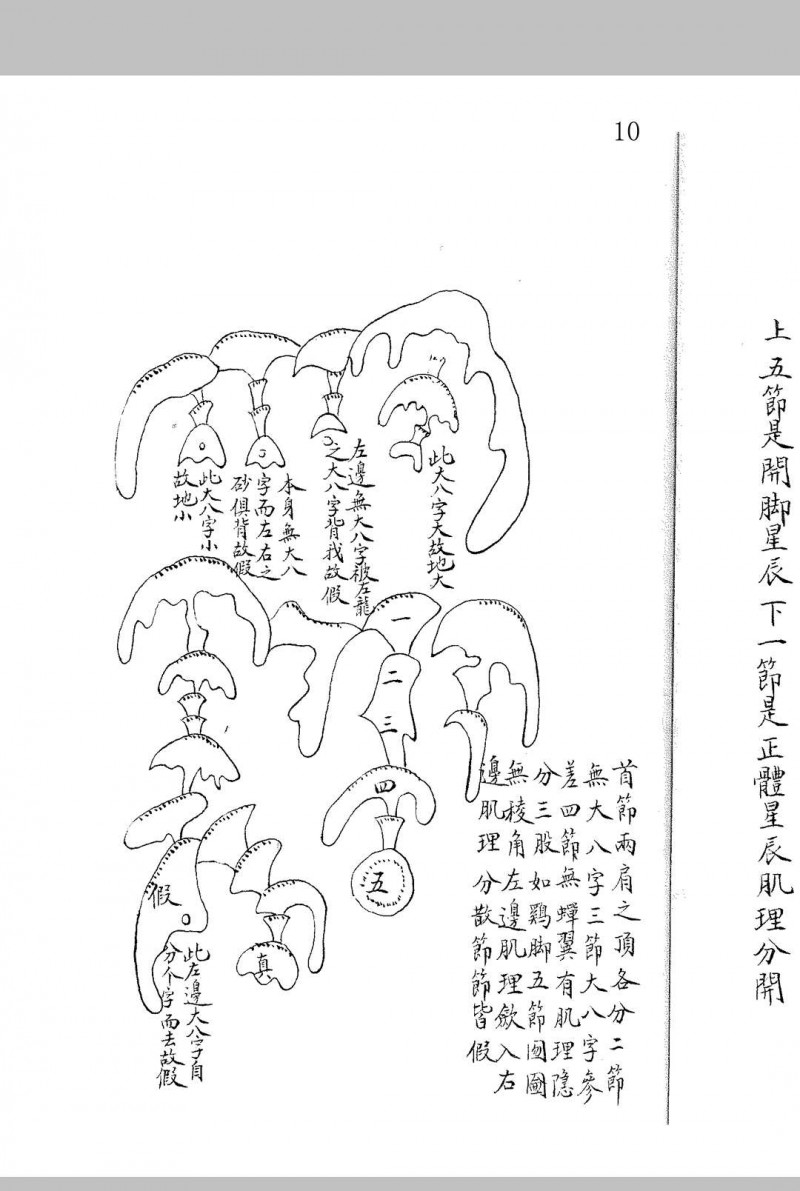 10
上五節是開脚星辰下一節是正體星辰肌理分開
此大八字大故地大
左邊無大八字被左龍
之大八字背我故假
本身無大八
字而左右之
砂俱背故假
此大八字小
故地小
一
二
三
四
五
首節兩肩之頂各分二節
無大八字三節大八字參
差四節無蟬翼有肌理隱
分三股如鷄脚五節囫圇
無稜角左邊肌理斂入右
邊肌理分散節節皆假
假
真
此左邊大八字自
分个字而去故假